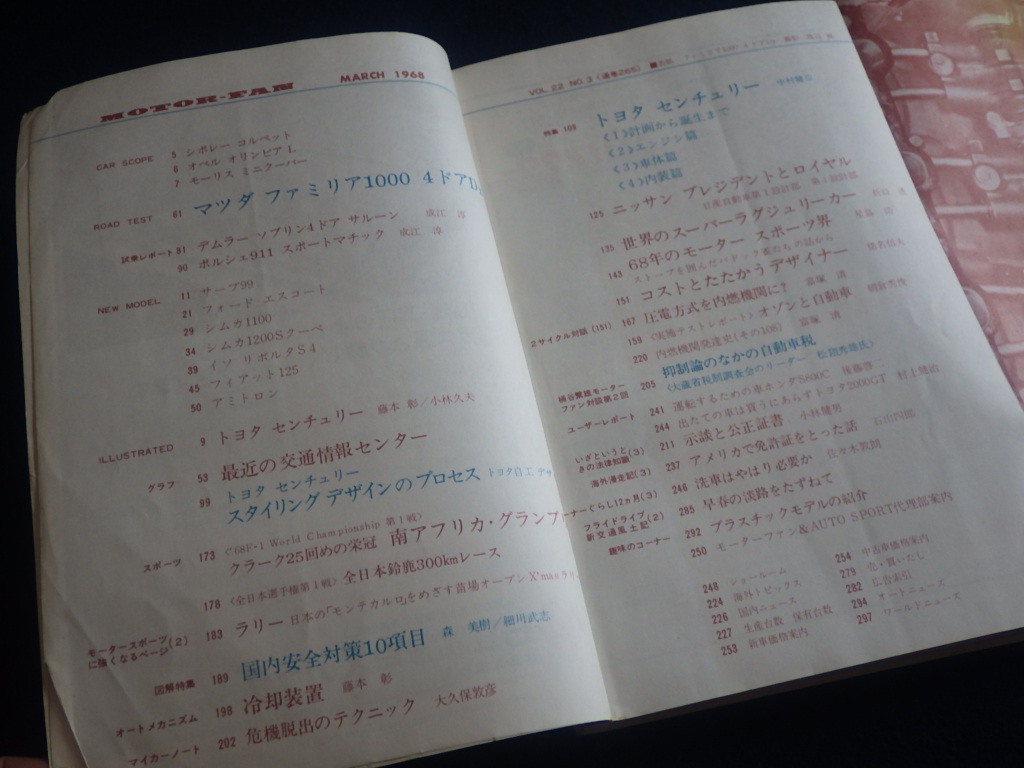 MOTOR-FAN
MARCH 1968
CAR SCOPE
5 シボレー コルベット
6 オペル オリンピア L
7 モーリス ミニクーパー
ROAD TEST 61 マツダ ファミリア1000 4ドアD
試乗レポート 81 デムラー ソブリン4ドア サルーン 成江 淳
90 ポルシェ911 スポートマチック 成江 淳
NEW MODEL 11 サーブ99
21 フォード エスコート
29 シムカ1100
34 シムカ1200Sクーペ
39 イソ リボルタS4
45 フィアット125
50 アミトロン
ILLUSTRATED 9 トヨタ センチュリー 藤本 彰／小林久夫
グラフ 53 最近の交通情報センター
99 トヨタ センチュリー
スタイリング デザインのプロセス トヨタ自工
スポーツ 173 〈'68F-1 World Championship 第1戦〉
クラーク25回めの栄冠 南アフリカ・グランプ
178 〈全日本選手権第1戦〉全日本鈴鹿300kmレース
モータースポーツ(2)
に強くなるページ 183 ラリー 日本の「モンテカルロ」をめざす苗場オープン X'masラリ
図解特集 189 国内安全対策10項目 森 美樹／細川武志
オートメカニズム 198 冷却装置 藤本 彰
マイカーノート 202 危機脱出のテクニック 大久保敦彦
VOL.22 NO.3 (通巻265)
特集 109 トヨタ センチュリー
《1》計画から誕生まで
《2》エンジン篇
《3》車体篇
《4》内装篇
125 ニッサン プレジデントとロイヤル
135 世界のスーパーラグジュリーカー
143 68年のモーター スポーツ界
151 コストとたたかうデザイナー
2サイクル対話(151) 167 圧電方式を内燃機関に? 富塚 清
159 〈実施テストレポート〉オゾンと自動車
220 内燃機関発達史(その108) 富塚 清
桶谷繁雄モーター
ファン対談第2回 205 抑制論のなかの自動車税
ユーザーレポート 241 運転するための車ホンダS800C
244 出たての車は買うにあらずトヨタ2000GT 村上健治
いざというと(3)
きの法律知識 211 示談と公正証書 小林健男
海外漫走記(3) 237 アメリカで免許証をとった話 石山四郎
ぐらし12ヵ月(3) 246 洗車はやはり必要か 佐々木敦朗
フライドライブ(2)
新交通風土記 285 早春の淡路をたずねて
趣味のコーナー 292 プラスチックモデルの紹介
250 モーターファン&AUTO SPORT代理部案内
248 ショールーム
224 海外トピックス
226 国内ニュース
227 生産台数 保有台数
253 新車価格案内
254 中古車価格案内
279 売・買いたし
282 広告索引
294 オートニュース
297 ワールドニュース